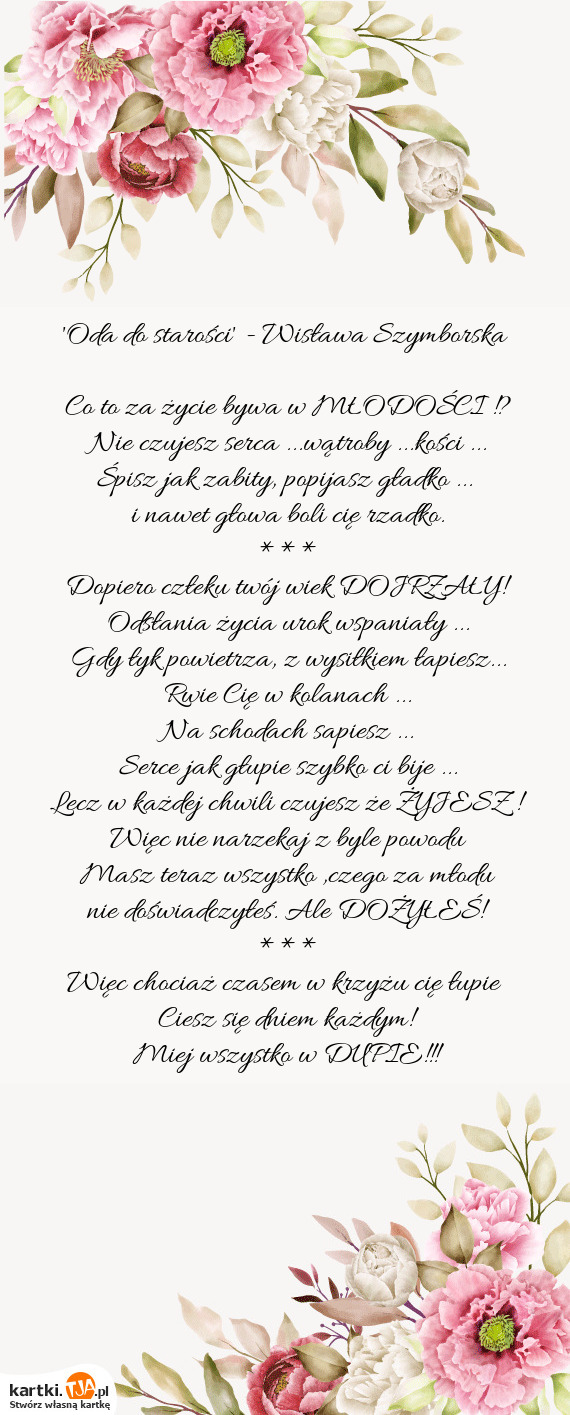 'Oda do starości' - Wisława Szymborska
Co to za życie bywa w MŁODOŚCI !?
Nie czujesz serca ...wątroby ...kości ...
Śpisz jak zabity, popijasz gładko ...
i nawet głowa boli cię rzadko.
* * *
Dopiero człeku twój wiek DOJRZAŁY!
Odsłania życia urok wspaniały ...
Gdy łyk powietrza, z wysiłkiem łapiesz...
Rwie Cię w kolanach ...
Na schodach sapiesz ...
Serce jak głupie szybko ci bije ...
Lecz w każdej chwili czujesz że ŻYJESZ !
Więc nie narzekaj z byle powodu
Masz teraz wszystko ,czego za młodu
nie doświadczyłeś. Ale DOŻYŁEŚ!
* * *
Więc chociaż czasem w krzyżu cię łupie
Ciesz się dniem każdym!
Miej wszystko w DUPIE!!!
kartki.TJA.pl
Stwórz własną kartkę